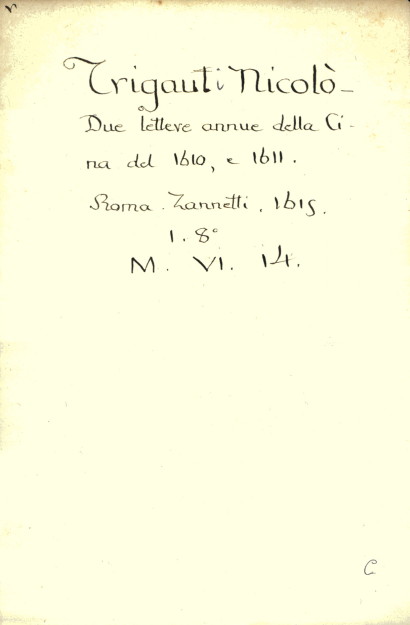 Trigauti Nicolò_
Due lettere annue della Ci-
na del 1610, e 1611.
Roma. Zannetti. 1615.
1. 8°
M. VI. 14.
C